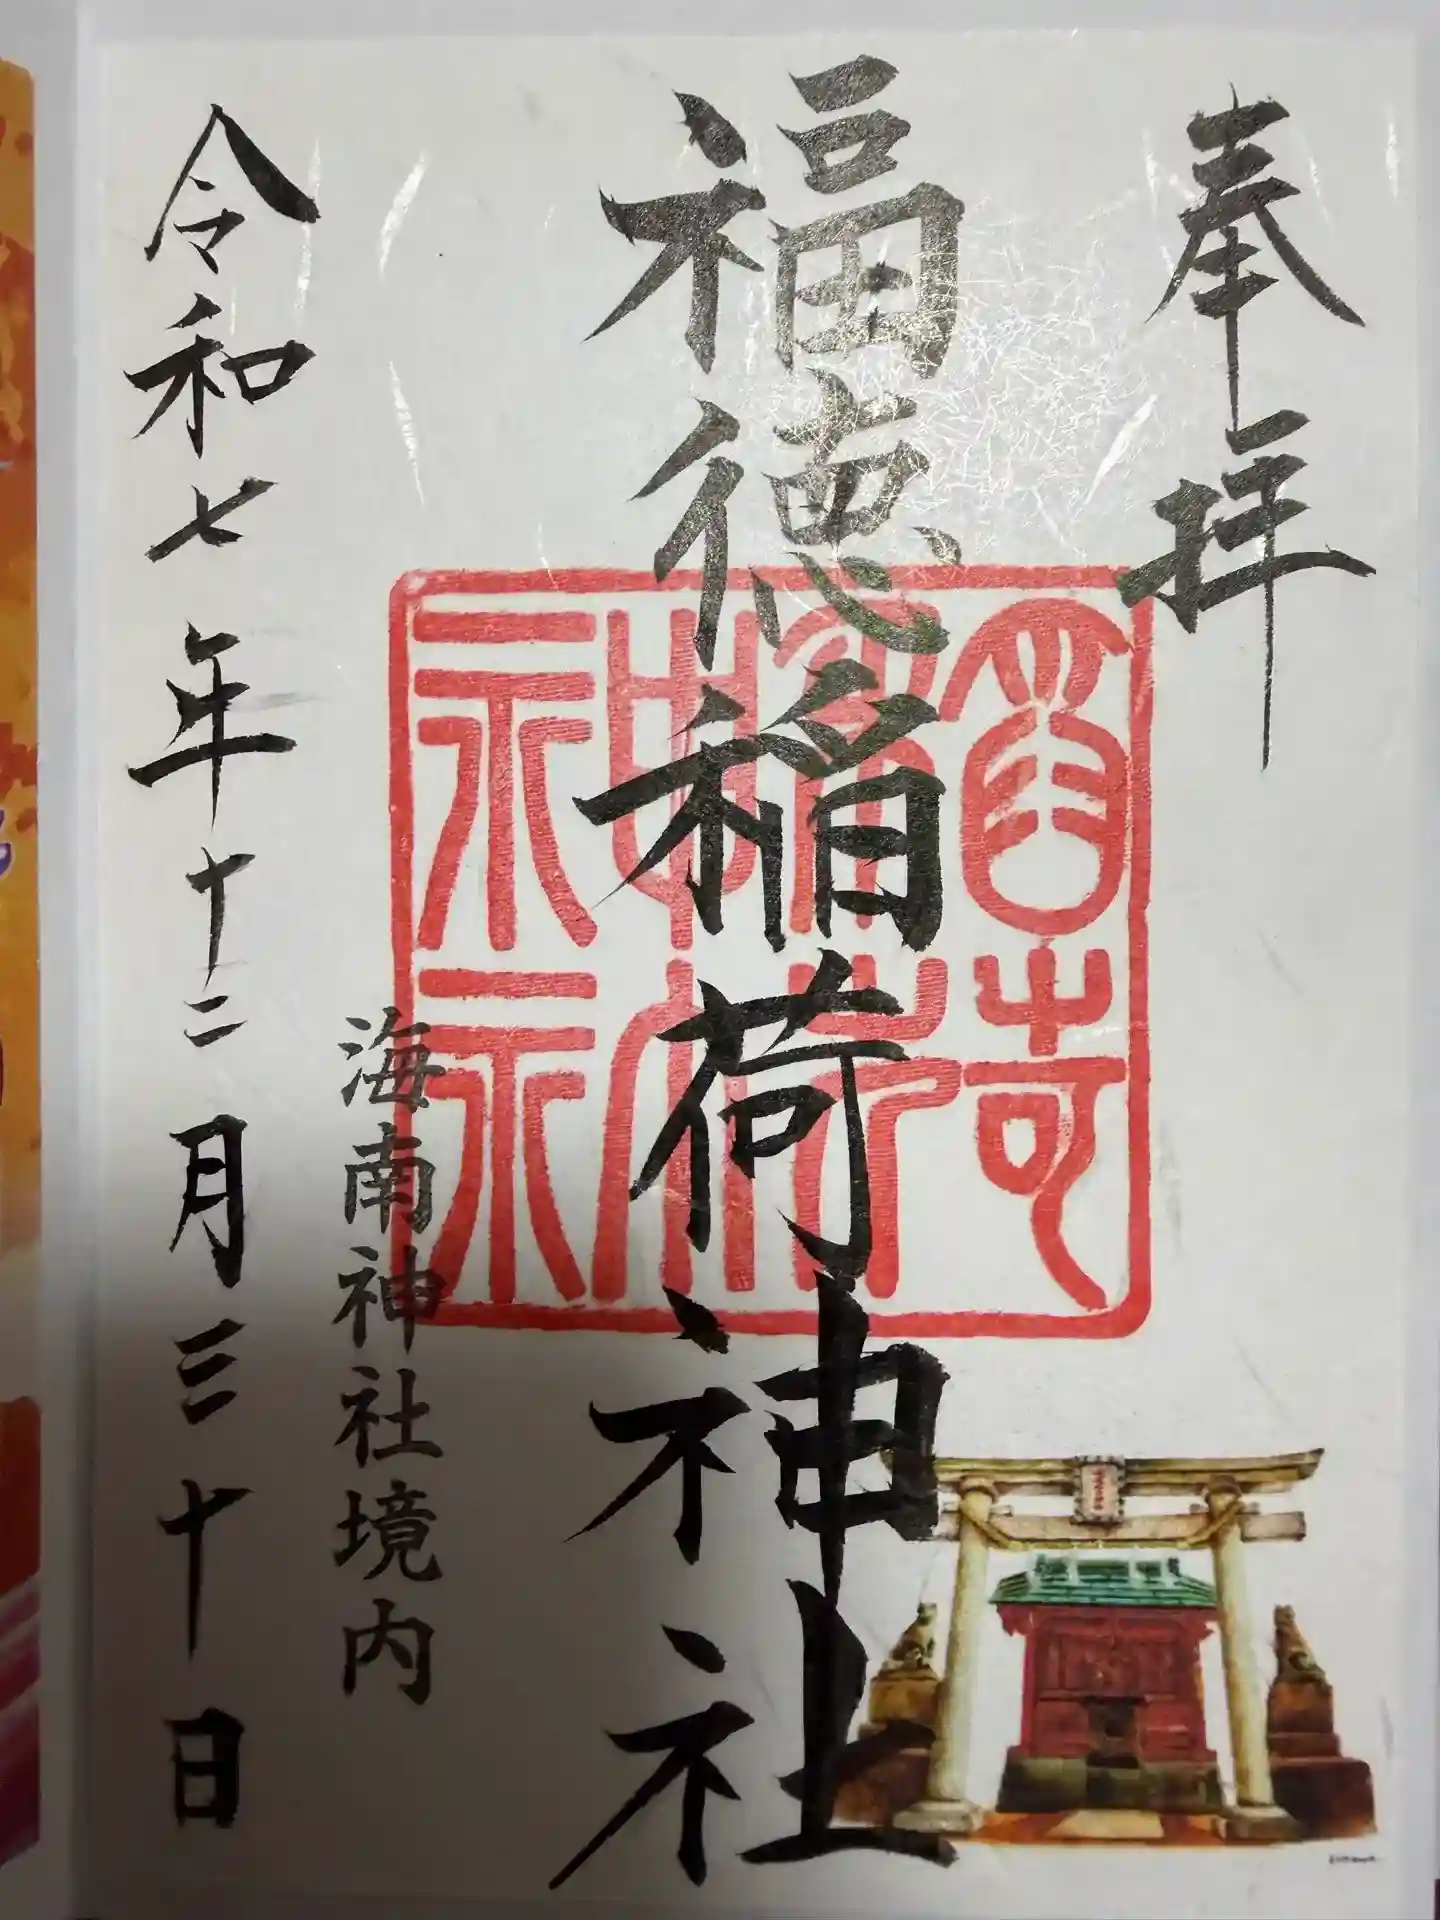 奉拝
福徳稲荷神社
海南神社境内
令和七年十二月三十日